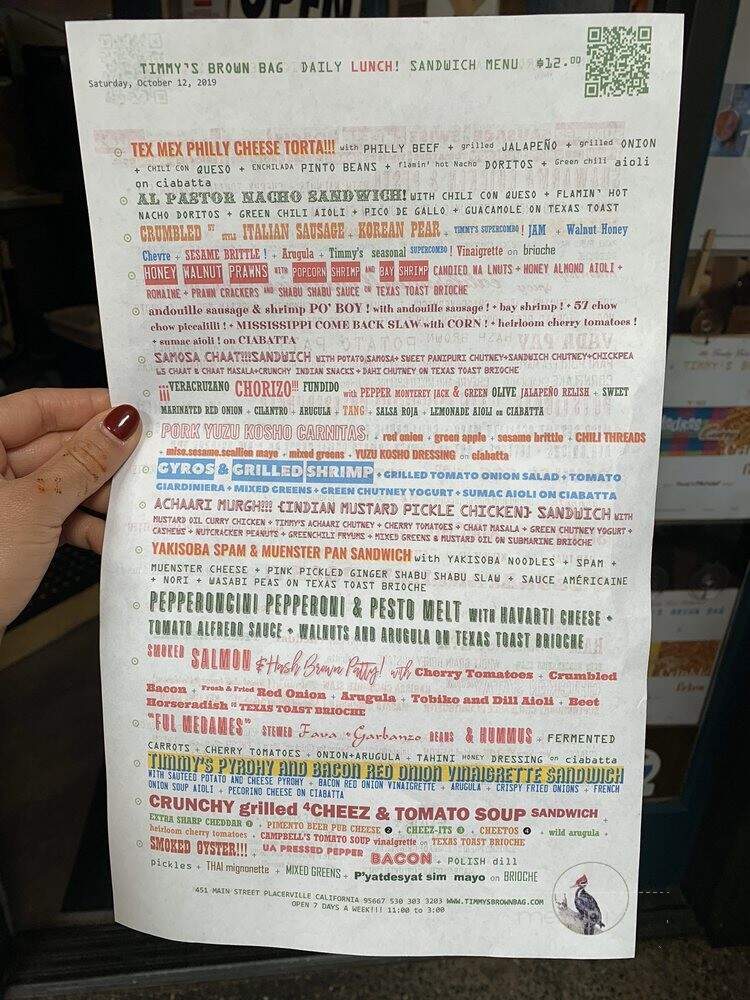 OPEN
TIMMY'S BROWN BAG DAILY LUNCH! SANDWICH MENU $12.00
Saturday, October 12, 2019
TEX MEX PHILLY CHEESE TORTA!!! with PHILLY BEEF + grilled JALAPEÑO + grilled ONION
+ CHILI CON QUESO + ENCHILADA PINTO BEANS + flamin' hot Nacho DORITOS + Green chili aioli
on ciabatta
AL PASTOR NACHO SANDWICH! WITH CHILI CON QUESO + FLAMIN' HOT
NACHO DORITOS + GREEN CHILI AIOLI + PICO DE GALLO + GUACAMOLE ON TEXAS TOAST
CRUMBLED NY STYLE ITALIAN SAUSAGE + KOREAN PEAR + TIMMY'S SUPERCOMBO! JAM + Walnut Honey
Chevre + SESAME BRITTLE ! + Arugula + Timmy's seasonal SUPERCOMBO! Vinaigrette on brioche
HONEY WALNUT PRAWNS WITH POPCORN SHRIMP AND BAY SHRIMP CANDIED WA LNUTS + HONEY ALMOND AIOLI +
ROMAINE + PRAWN CRACKERS AND SHABU SHABU SAUCE ON TEXAS TOAST BRIOCHE
andouille sausage & shrimp PO' BOY ! with andouille sausage ! + bay shrimp ! + 57 chow
chow piccalilli ! + MISSISSIPPI COME BACK SLAW with CORN ! + heirloom cherry tomatoes !
+ sumac aioli ! on CIABATTA
SAMOSA CHAAT!!!SANDWICH WITH POTATO SAMOSA+ SWEET PANIPURI CHUTNEY+SANDWICH CHUTNEY+CHICKPEA
& CHAAT & CHAAT MASALA+CRUNCHY INDIAN SNACKS + DAHI CHUTNEY ON TEXAS TOAST BRIOCHE
¡¡¡VERACRUZANO CHORIZO!!! FUNDIDO with PEPPER MONTEREY JACK & GREEN OLIVE JALAPEÑO RELISH + SWEET
MARINATED RED ONION + CILANTRO + ARUGULA + TANG + SALSA ROJA + LEMONADE AIOLI on CIABATTA
PORK YUZU KOSHO CARNITAS + red onion + green apple + sesame brittle + CHILI THREADS
+ miso.sesame.scallion mayo + mixed greens + YUZU KOSHO DRESSING on ciabatta
GYROS & GRILLED SHRIMP + GRILLED TOMATO ONION SALAD + TOMATO
GIARDINIERA + MIXED GREENS + GREEN CHUTNEY YOGURT + SUMAC AIOLI ON CIABATTA
ACHAARI MURGH!!! {INDIAN MUSTARD PICKLE CHICKEN} SANDWICH WITH
MUSTARD OIL CURRY CHICKEN + TIMMY'S ACHAARI CHUTNEY + CHERRY TOMATOES + CHAAT MASALA + GREEN CHUTNEY YOGURT +
CASHEWS + NUTCRACKER PEANUTS + GREENCHILI FRYUMS + MIXED GREENS & MUSTARD OIL ON SUBMARINE BRIOCHE
YAKISOBA SPAM & MUENSTER PAN SANDWICH with YAKISOBA NOODLES + SPAM +
MUENSTER CHEESE + PINK PICKLED GINGER SHABU SHABU SLAW + SAUCE AMÉRICAINE
+ NORI + WASABI PEAS ON TEXAS TOAST BRIOCHE
PEPPERONCINI PEPPERONI & PESTO MELT WITH HAVARTI CHEESE +
TOMATO ALFREDO SAUCE + WALNUTS AND ARUGULA ON TEXAS TOAST BRIOCHE
SMOKED SALMON & Hash Brown Patty! with Cherry Tomatoes + Crumbled
Bacon + Fresh & Fried Red Onion + Arugula + Tobiko and Dill Aioli + Beet
Horseradish on TEXAS TOAST BRIOCHE
"FUL MEDAMES" STEWED Fava + Garbanzo BEANS & HUMMUS + FERMENTED
CARROTS + CHERRY TOMATOES + ONION+ARUGULA + TAHINI HONEY DRESSING on ciabatta
TIMMY'S PYROHY AND BACON RED ONION VINAIGRETTE SANDWICH
WITH SAUTEED POTATO AND CHEESE PYROHY + BACON RED ONION VINAIGRETTE + ARUGULA + CRISPY FRIED ONIONS + FRENCH
ONION SOUP AIOLI + PECORINO CHEESE ON CIABATTA
CRUNCHY grilled 4CHEEZ & TOMATO SOUP SANDWICH +
EXTRA SHARP CHEDDAR ❶ + PIMENTO BEER PUB CHEESE ❷ + CHEEZ-ITS ❸ + CHEETOS ❹ + wild arugula +
heirloom cherry tomatoes + CAMPBELL'S TOMATO SOUP vinaigrette on TEXAS TOAST BRIOCHE
SMOKED OYSTER!!! + UA PRESSED PEPPER BACON + POLISH dill
pickles + THAI mignonette + MIXED GREENS + P'yatdesyat sim mayo on BRIOCHE
451 MAIN STREET PLACERVILLE CALIFORNIA 95667 530 303 3203 WWW.TIMMYSBROWNBAG.COM
OPEN 7 DAYS A WEEK!!! 11:00 to 3:00